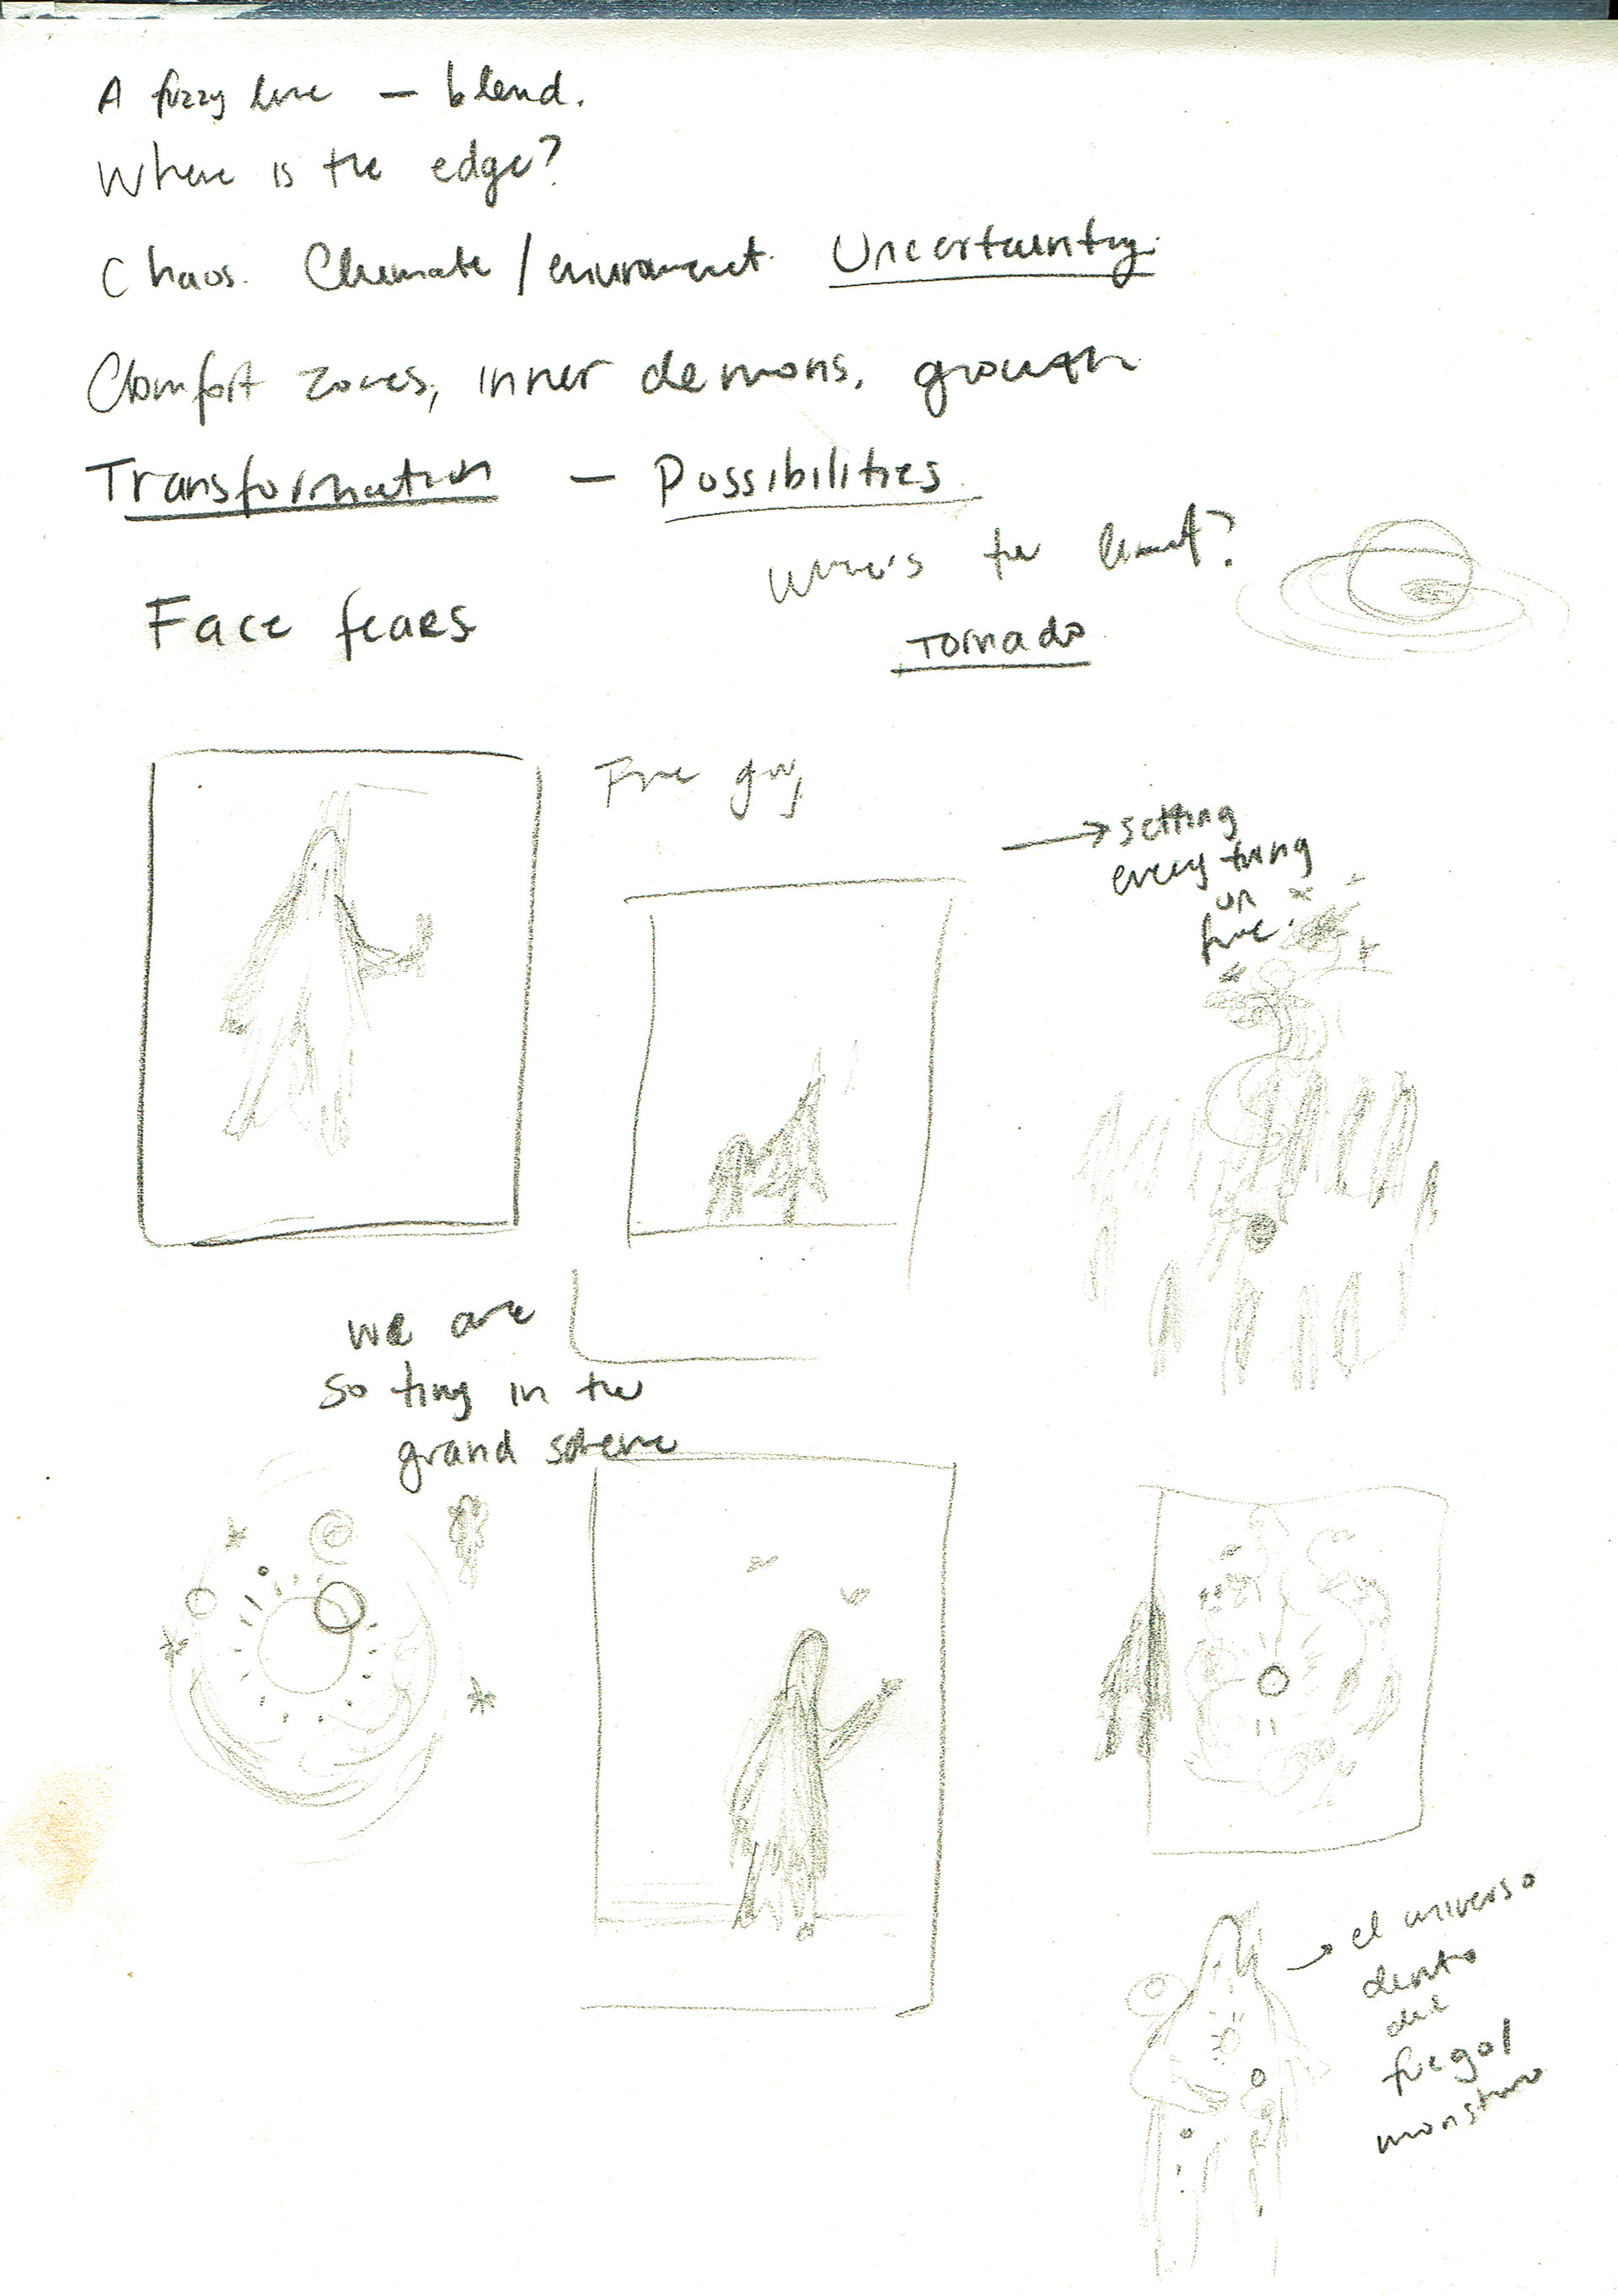 A fuzzy line — blend.
Where is the edge?
Chaos. Climate / enviroment. Uncertainty.
Comfort zones, inner demons, growth
Transformation — Possibilities
Where's the limit?
Face fears
Tornado
Fire guy
→ setting
everything
on
fire.
we are
so tiny in the
grand scheme
→ el universo
dentro
del
fuego/
monstruo